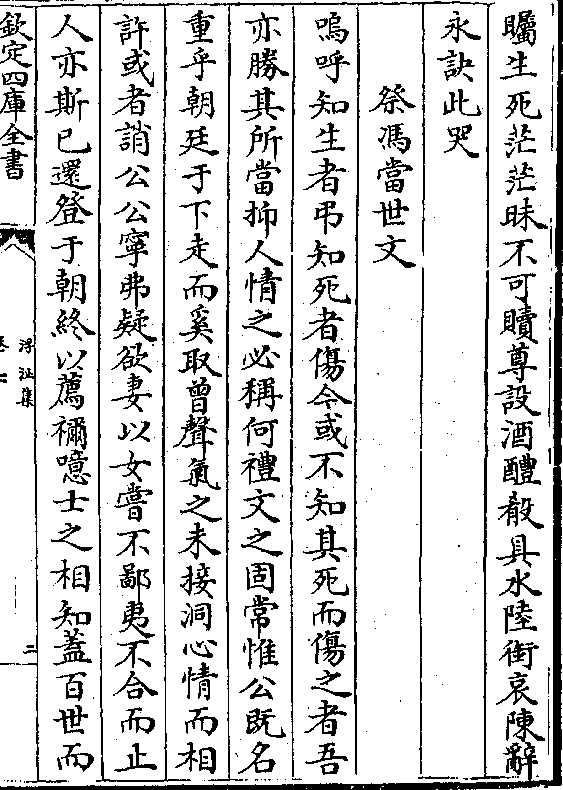 矚生死茫茫昧不可贖尊設酒醴殽具水陸銜哀陳辭
永訣此哭
祭馮當世文
嗚呼知生者弔知死者傷今或不知其死而傷之者吾
亦勝其所當抑人情之必稱何禮文之固常惟公既名
重乎朝廷于下走而奚取曾聲氣之未接洞心情而相
許或者誚公公寧弗疑欲妻以女嘗不鄙夷不合而止
人亦斯已還登于朝終以薦禰噫士之相知蓋百世而
欽定四庫全書
浮沚集
卷七
二